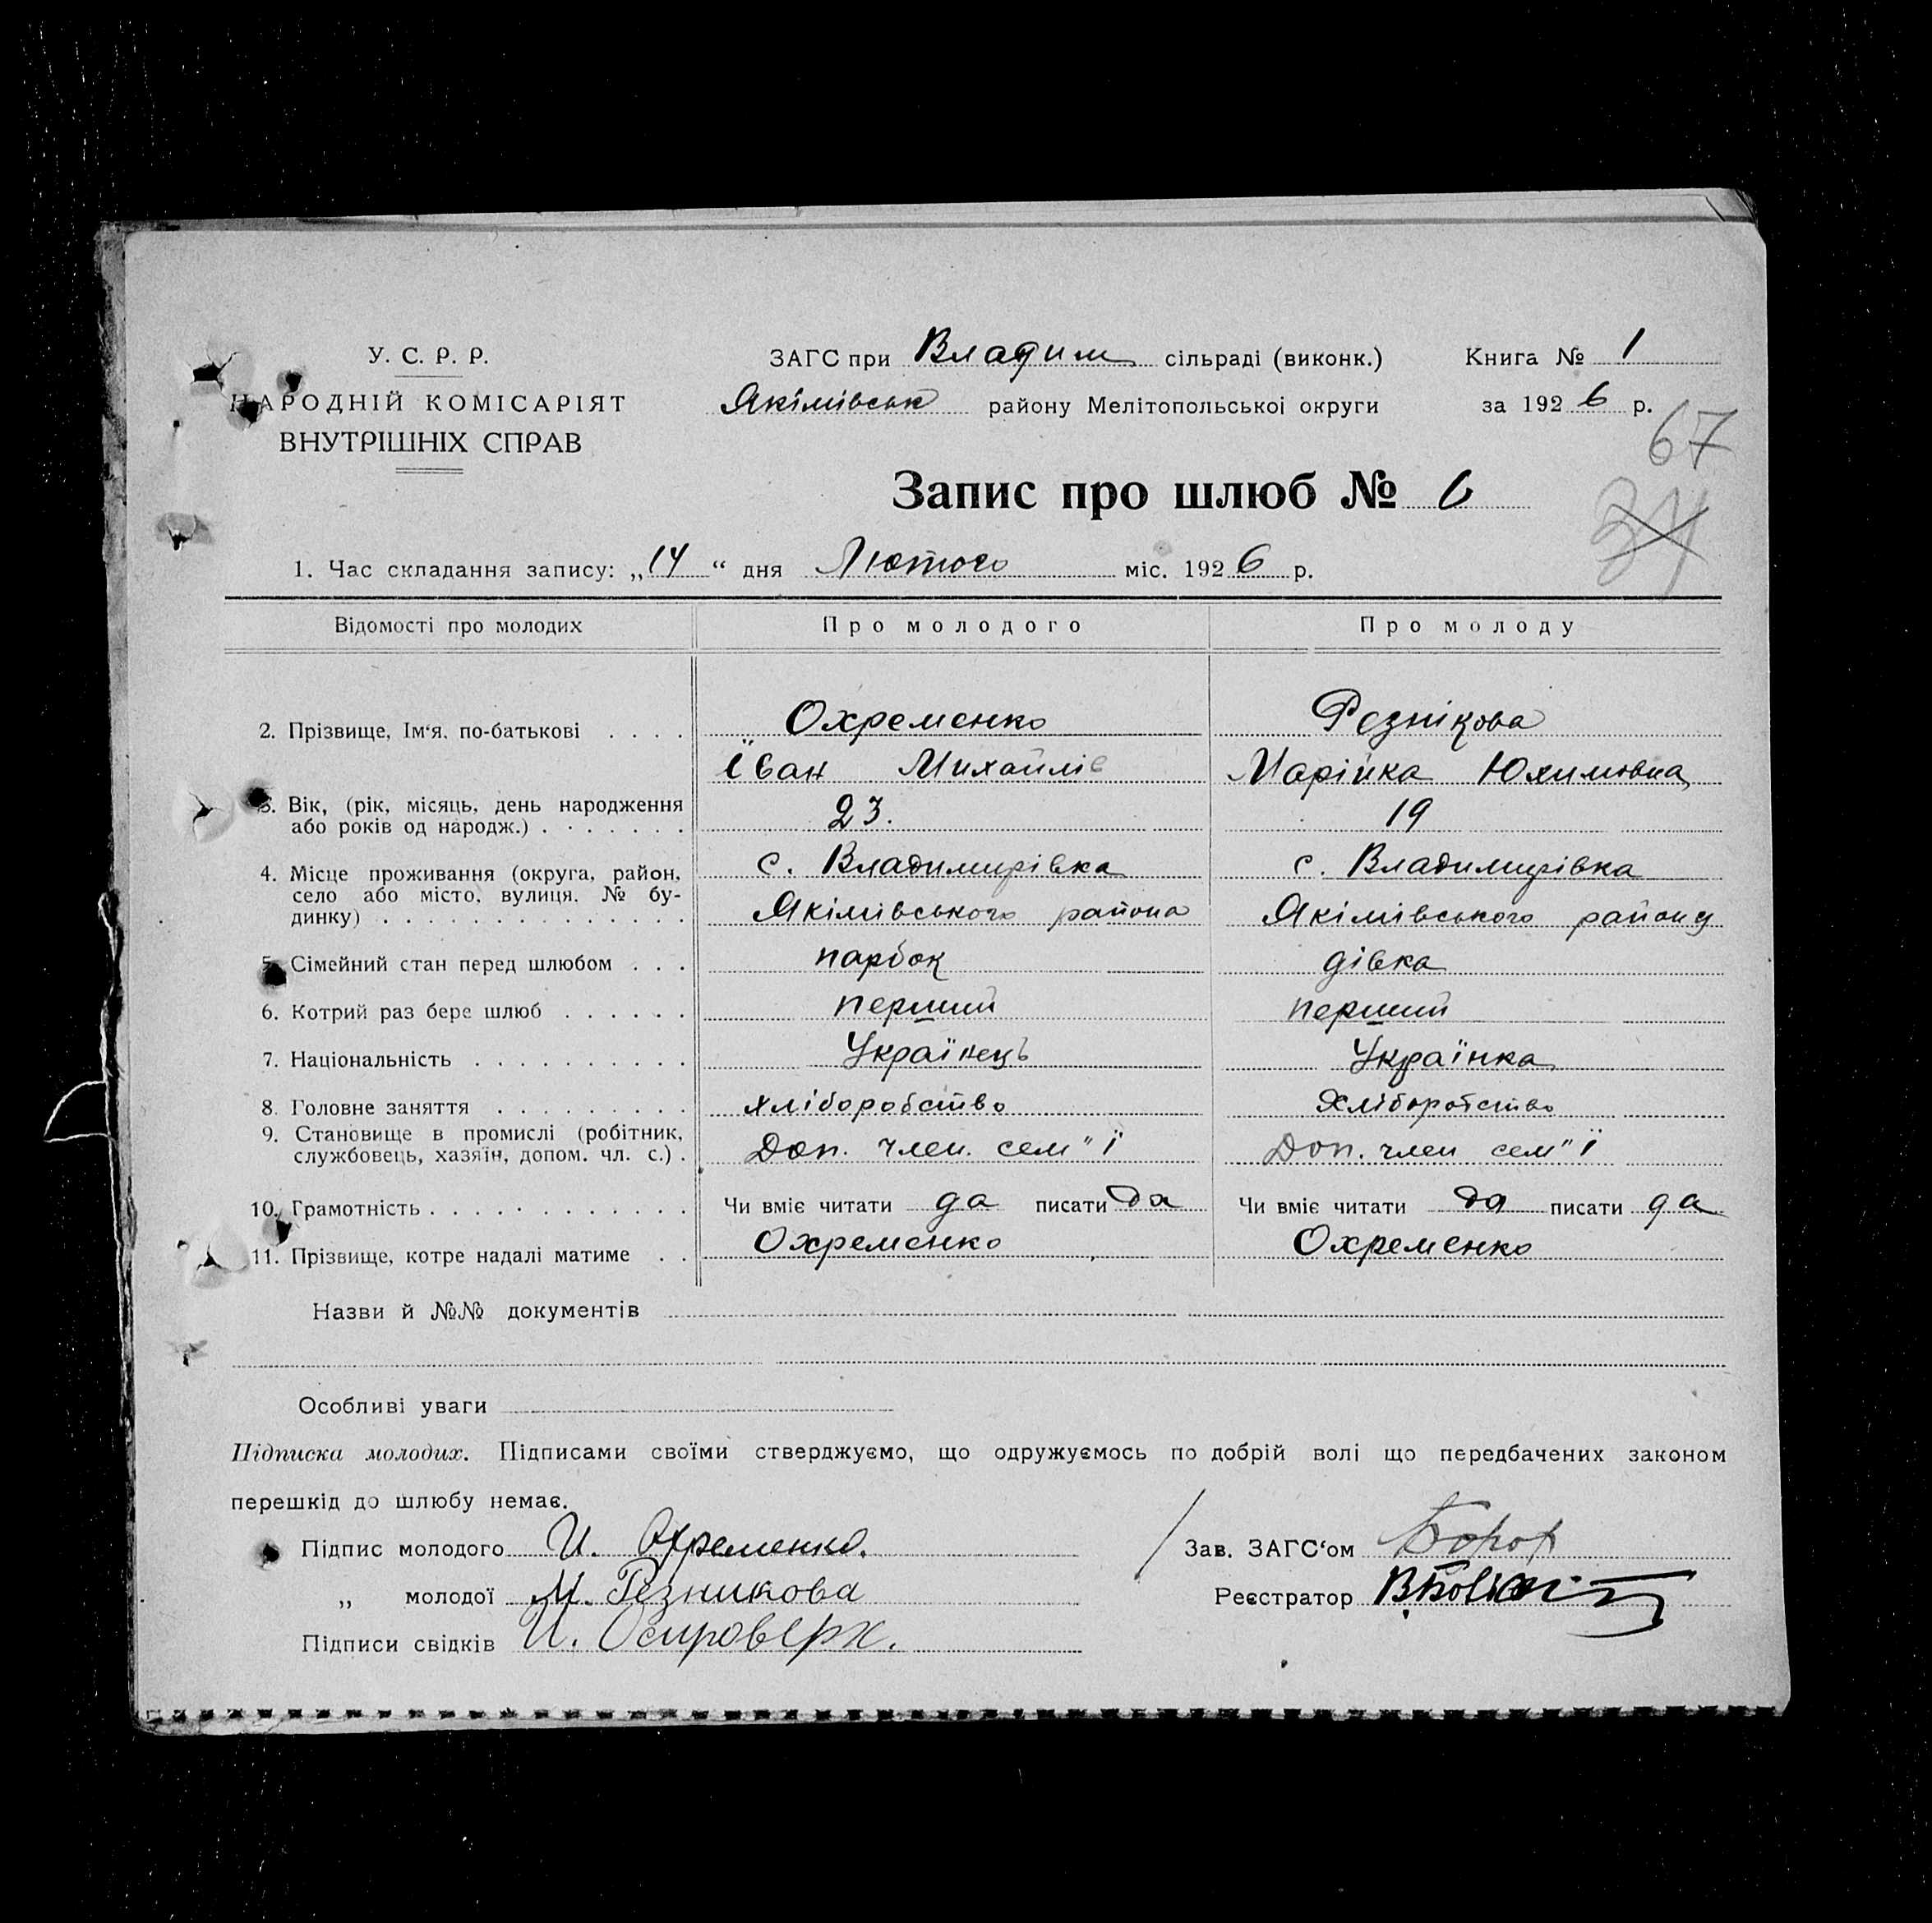 У. С. Р. Р.
НАРОДНІЙ КОМІСАРІЯТ
ВНУТРІШНІХ СПРАВ
ЗАГС при Владим сільраді (виконк.) Книга № 1
Якімівськ району Мелітопольської округи за 1926 р.
67
34
Запис про шлюб № 6
1. Час складання запису: „14“ дня Лютого міс. 1926 р.
Відомості про молодих Про молодого Про молоду
2. Прізвище, Ім‘я, по-батькові . . . . Охременко Резнікова
Їван Михайлів Марійка Юхимовна
3. Вік, (рік, місяць, день народження 23. 19
або років од народж.) . . . . . . .
4. Місце проживання (округа, район, с. Владимирівка с. Владимирівка
село або місто, вулиця, № бу-
динку) . . . . . . . . . . . . . . Якімівського района Якімівського району
5. Сімейний стан перед шлюбом . . . парбок дівка
6. Котрий раз бере шлюб . . . . . . перший перший
7. Національність . . . . . . . . . . Українець Українка
8. Головне заняття . . . . . . . . . хліборобство Хліборобство
9. Становище в промислі (робітник,
службовець, хазяїн, допом. чл. с.) . Доп. член. сем"ї Доп. член сем"ї
10. Грамотність . . . . . . . . . . . . Чи вміє читати да писати да Чи вміє читати да писати да
11. Прізвище, котре надалі матиме . . Охременко Охременко
Назви й №№ документів
Особливі уваги
Підписка молодих. Підписами своїми стверджуємо, що одружуємось по добрій волі що передбачених законом
перешкід до шлюбу немає.
Підпис молодого И. Охременко. Зав. ЗАГС‘ом
„ молодої М. Резникова Реєстратор
Підписи свідків И. Островерх.